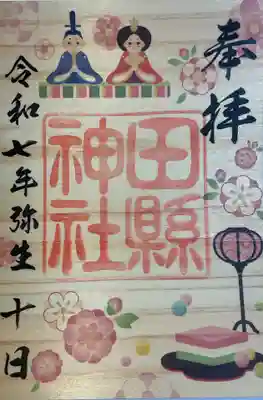 奉拝
田縣
神社
令和七年弥生十日